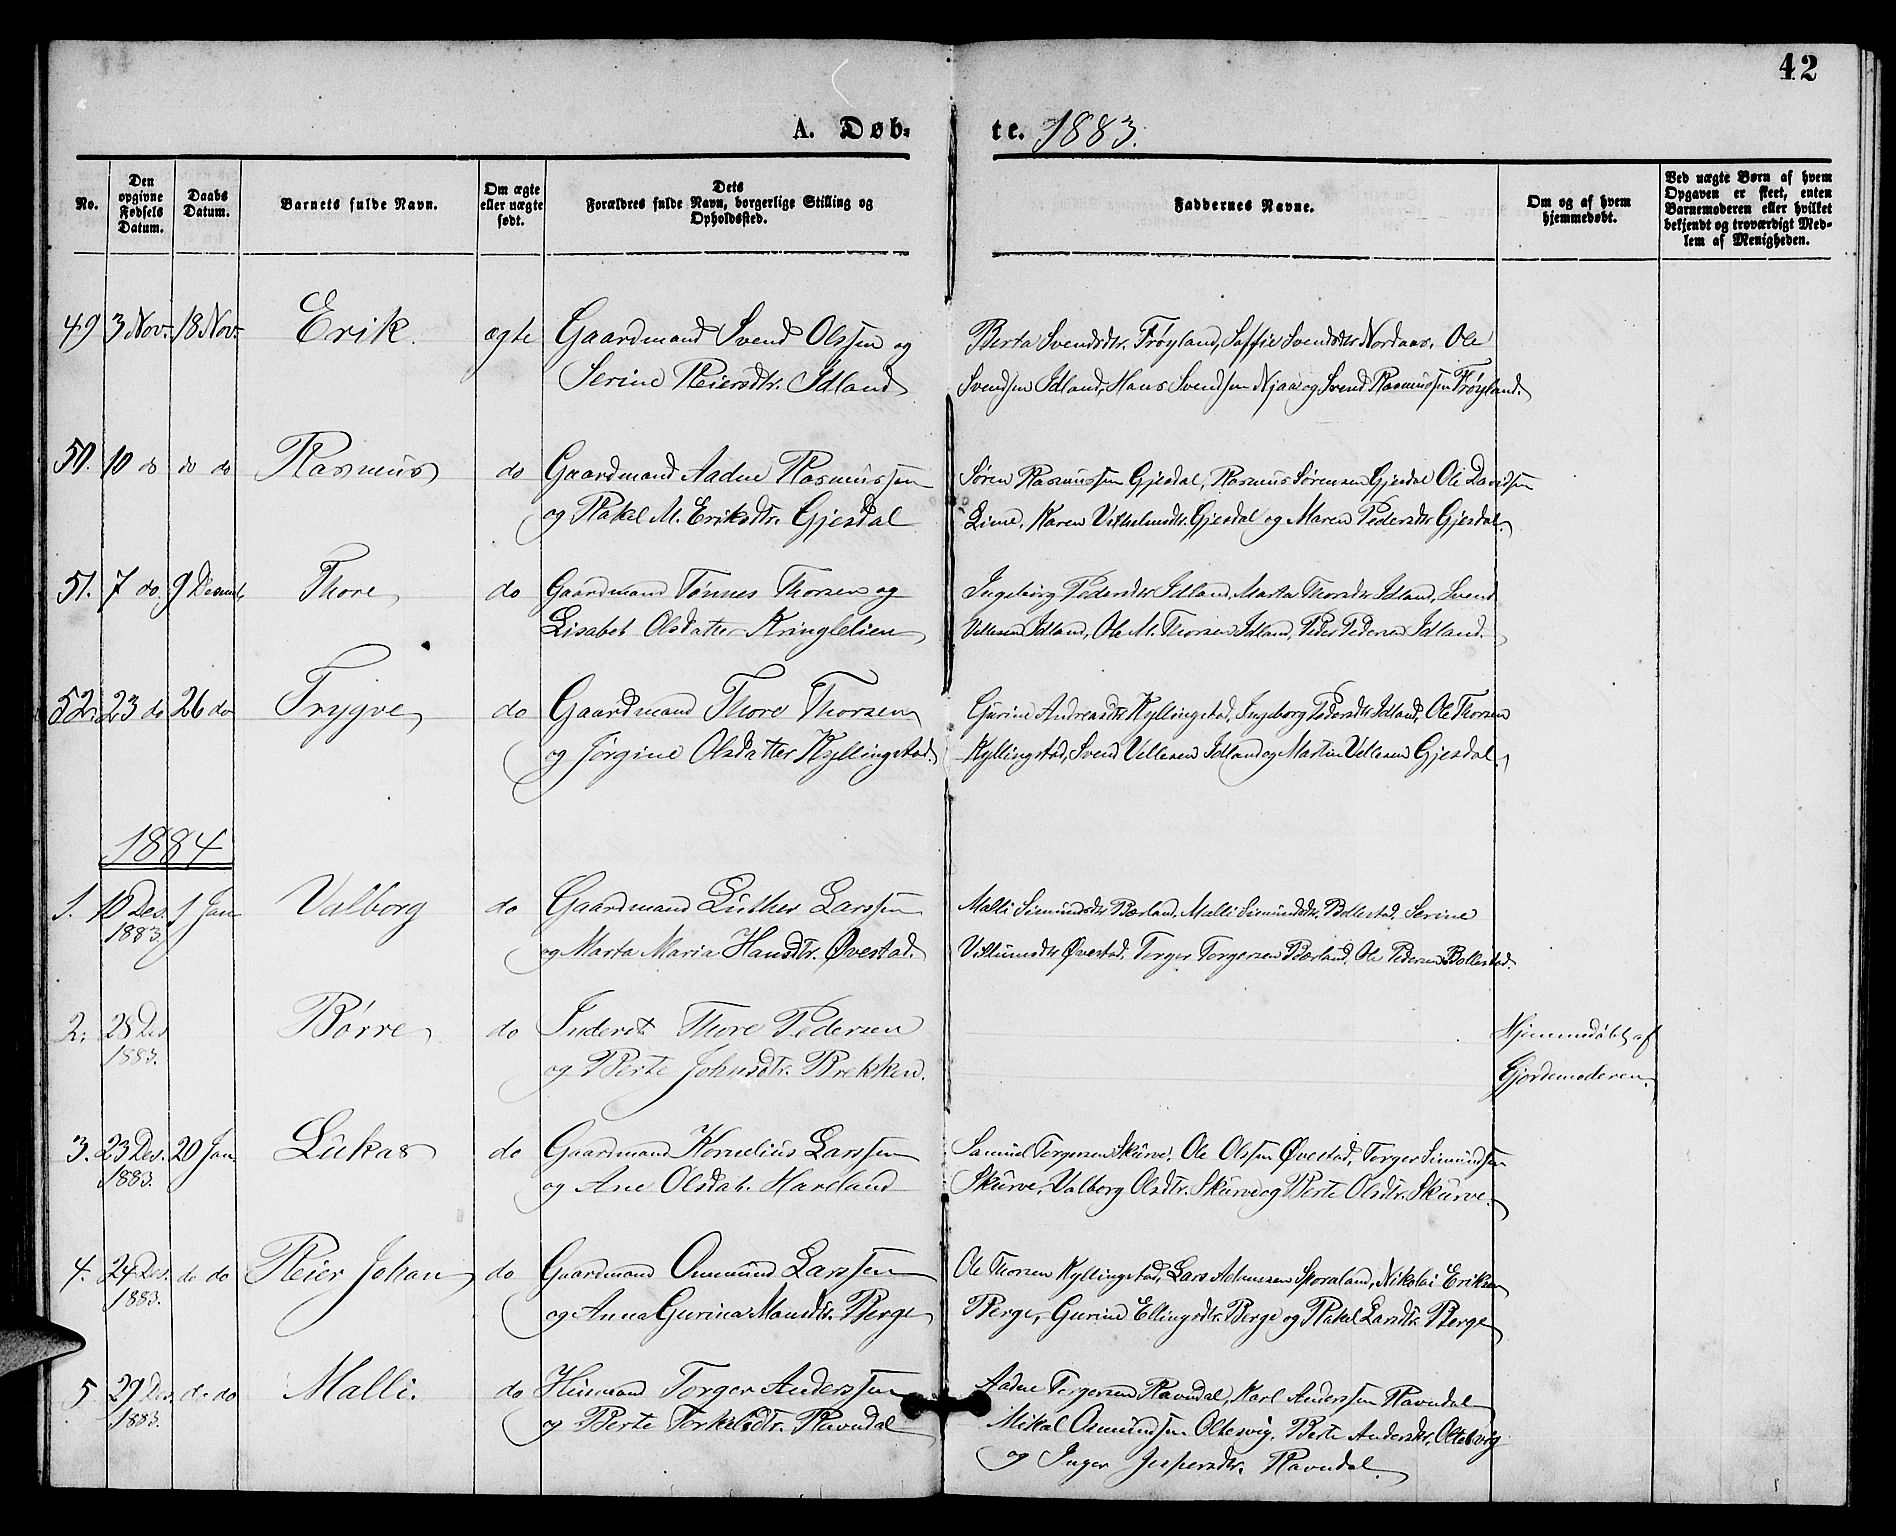 42
A. Døb- te. 1883.
No.
Den opgivne Fødsels Datum.
Daabs Datum.
Barnets fulde Navn.
Om ægte eller uægte født.
Dets Forældres fulde Navn, borgerlige Stilling og Opholdssted.
Faddernes Navne.
Om og af hvem hjemmedøbt.
Ved uægte Børn af hvem Opgaven er skeet, enten Barnemoderen eller hvilket bekjendt og troværdigt Medlem af Menigheden.
49 3 Nov. 18 Nov. Erik. ægte Gaardmand Svend Olssen og
Serine Reiersdtr. Idland
Berta Svendsdtr. Frøyland, Saffie Svendsdtr Nordaas. Ole
Svendsen Idland, Hans Svendsen Njaa og Svend Rasmussen Frøyland.
50. 10 do do do Rasmus do Gaardmand Aadne Rasmussen
og Rakel M. Eriksdtr. Gjesdal
Søren Rasmussen Gjesdal, Rasmus Sørensen Gjesdal Ole Davidsen
Lime, Karen Vilhelmsdtr. Gjesdal og Maren Pedersdtr Gjesdal.
51. 7 do. 9 Desemb. Thore do Gaardmand Tønnes Thorsen og
Lisabet Olsdatter Kringlelien
Ingeborg Pedersdtr Idland, Marta Thorsdtr Idland, Svend
Vellesen Idland, Ole M. Thorsen Idland, Peder Pedersen Idland.
52. 23 do 26 do Trygve do Gaardmand Thore Thorsen
og Jørgine Olsdatter Kyllingstad.
Gurine Andreasdtr Kyllingstad, Ingeborg Pedersdtr Idland, Ole Thorsen
Kyllingstad, Svend Vellesen Idland og Martin Vellesen Gjesdal.
1884
1. 10 Des. 1883 1 Jan Valborg do Gaardmand Luther Larssen
og Marta Maria Hansdtr. Øvestad.
Malli Simundsdtr Bærland, Malli Simundsdtr. Bollestad. Serine
Villumsdtr Øvestad. Torger Torgersen Bærland. Ole Pedersen Bollestad.
2. 28 Des 1883. Børre do Inderst Thore Pedersen
og Berte Johnsdtr. Brekken.
Hjemmedøbt af
Gjordemoderen.
3. 23 Des. 1883. 20 Jan Lukas do Gaardmand Kornelius Larssen
og Ane Olsdat. Haveland
Samuel Torgersen Skurve. Ole Olssen Øvestad, Torger Simundsen
Skurve, Valborg Olsdtr. Skurve og Berte Olsdtr. Skurve.
4. 24 Des. 1883. do do Reier Johan do Gaardmand Ommund Larssen
og Anna Gurina Mansdtr. Berge
Ole Thorsen Kyllingstad, Lars Asmussen Skoraland, Nikolai Eriksen
Berge, Gurine Ellingsdtr. Berge og Rakel Larsdtr. Berge
5 29 Des. 1883. do do Malli. do Husmand Torger Anderssen
og Berte Torkelsdtr. Ravndal
Aadne Torgersen Ravndal, Karl Anderssen Ravndal
Mikal Osmundsen Oltesvig. Berte Andersdtr. Oltesvig
og Inger Jespersdtr. Ravndal.